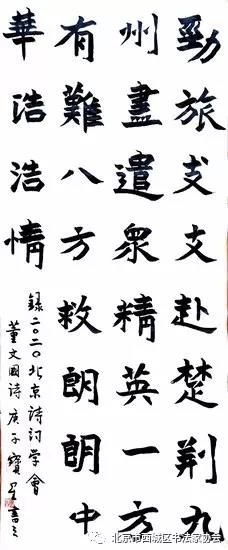 勁旅支支赴楚荆九
州盡遣衆精英一方
有難八方救朗朗中
華浩浩情
録二〇二〇北京诗词学會
董文國诗庚子寶書
北京市西城区书法家协会